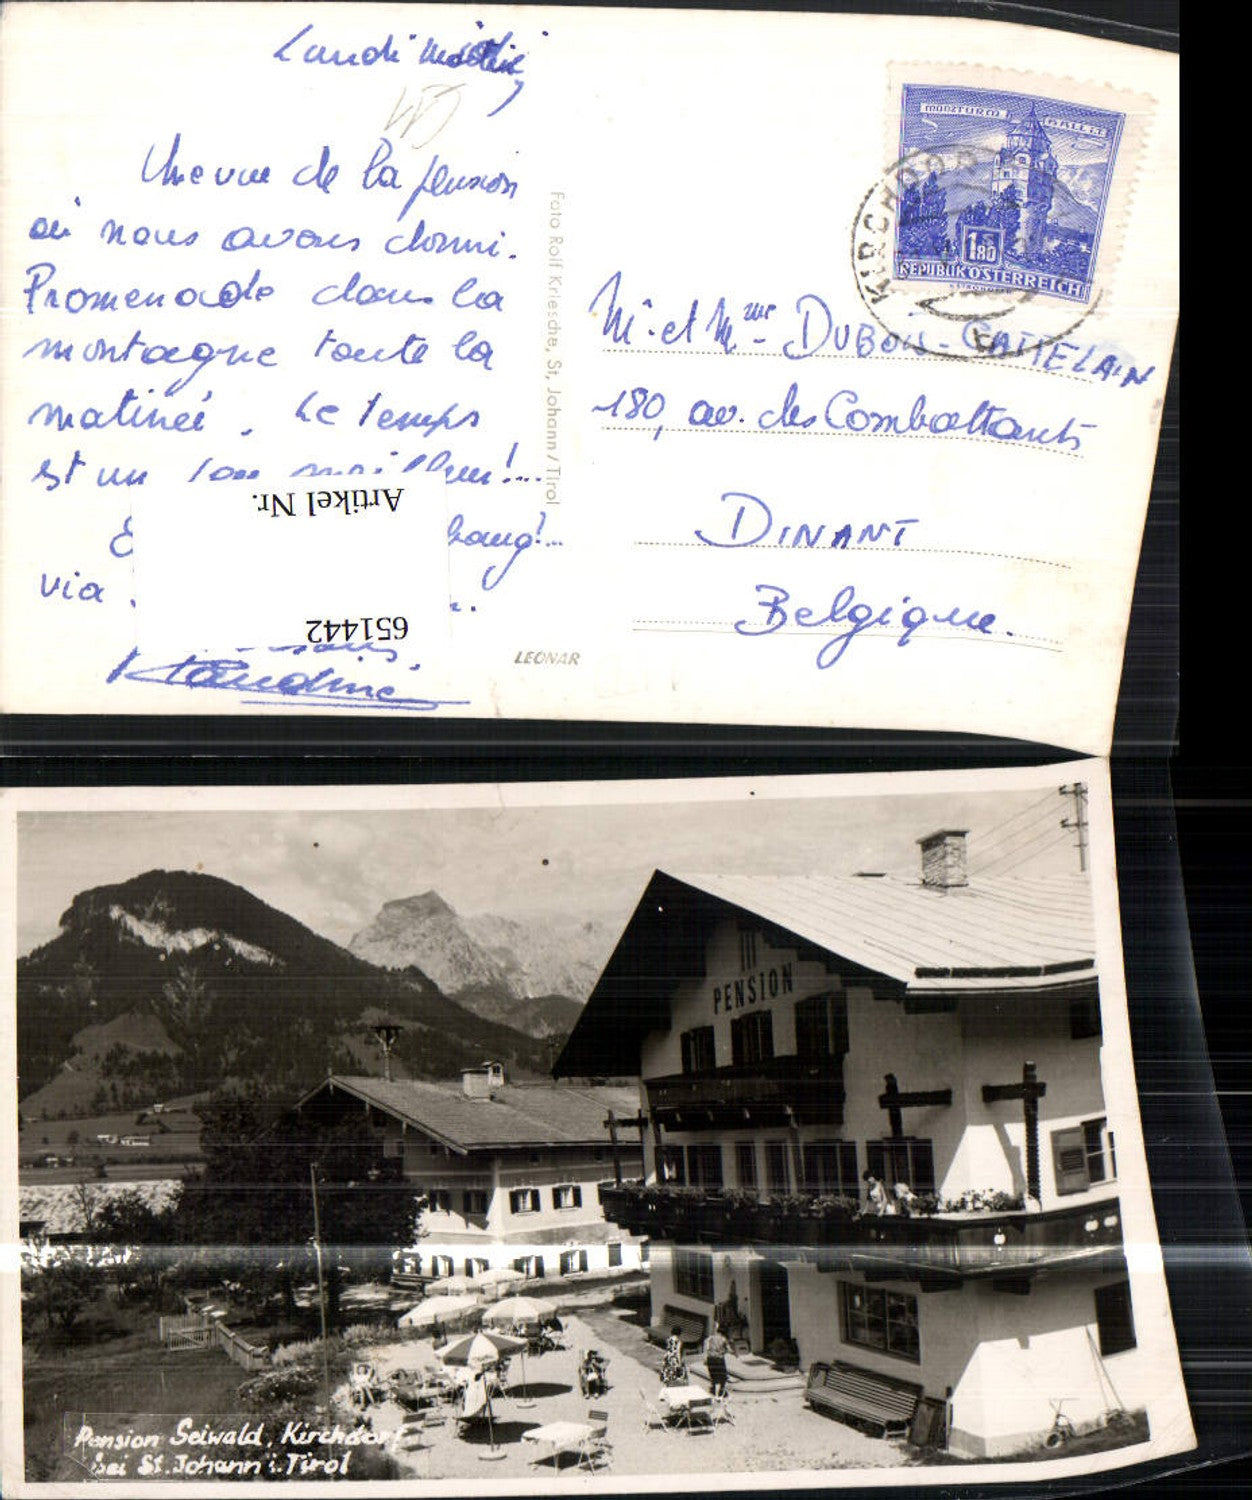 Lundi
Une vue de la pension
où nous avons dormi.
Promenade dans la
montagne toute la
matinée. Le temps
est un
via
Claudine
Artikel Nr.
651442
Foto Rolf Kriesche, St. Johann/Tirol
LEONAR
MÜNZTURM HALL I.T.
1.80
REPUBLIK ÖSTERREICH
KIRCHDORF
M. et Mme DUBOIS-CATTELAIN
180, av. des Combattants
DINANT
Belgique.
PENSION
Pension Seiwald, Kirchdorf
bei St. Johann i. Tirol